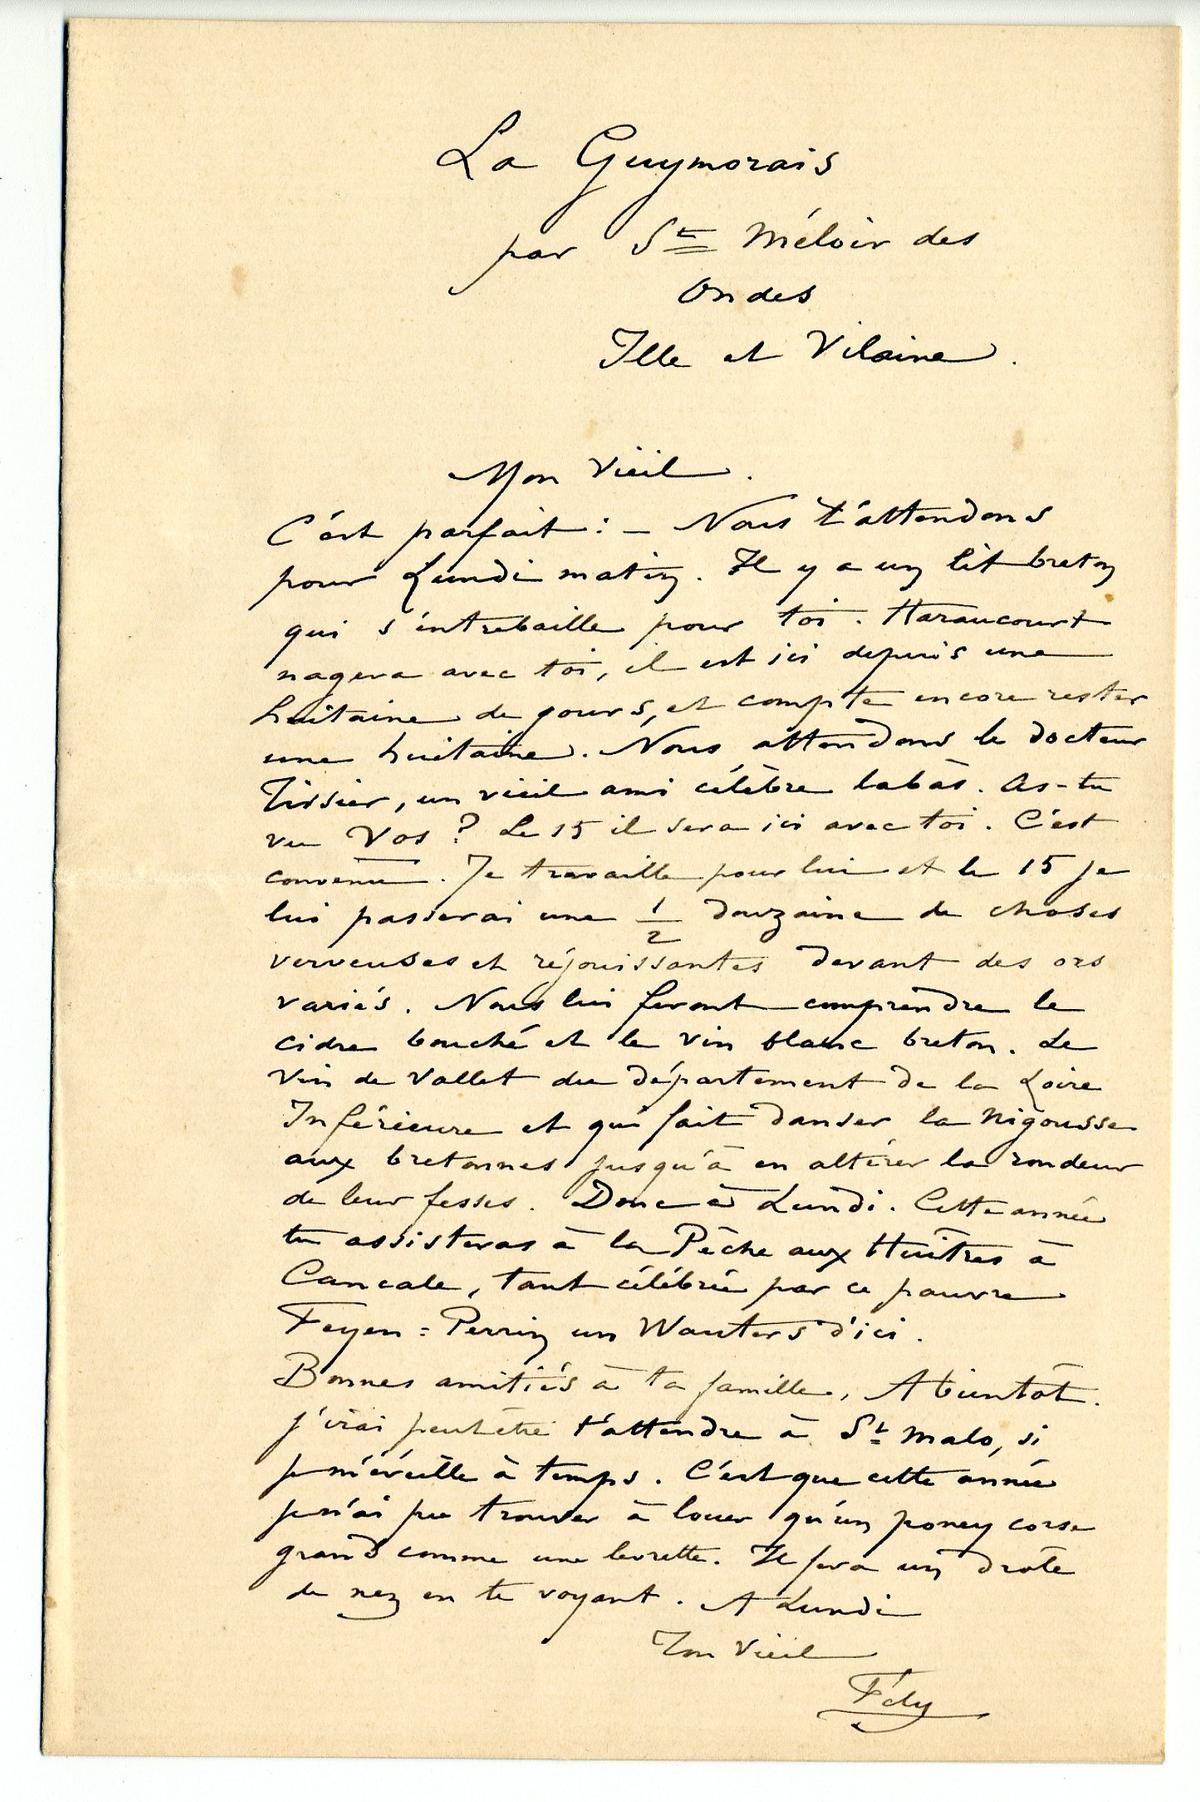 La Guymorais
par St Méloir des
Ondes
Ille et Vilaine.
Mon Vieil.
C'est parfait : – Nous t'attendons
pour Lundi matin. Il y a un lit breton
qui s'entrebaille pour toi. Haraucourt
nagera avec toi, il est ici depuis une
huitaine de jours, et compte encore rester
une huitaine. Nous attendons le docteur
Tissier, un vieil ami célèbre labàs. As-tu
vu Vos ? Le 15 il sera ici avec toi. C'est
convenu. Je travaille pour lui et le 15 je
lui passerai une 1/2 douzaine de choses
verveuses et réjouissantes devant des ors
variés. Nous lui feront comprendre le
cidre bouché et le vin blanc breton. Le
Vin de Vallet du département de la Loire
Inférieure et qui fait danser la Nigousse
aux bretonnes jusqu'à en altérer la rondeur
de leur fesses. Donc à Lundi. Cette année
tu assisteras à la Pêche aux Huîtres à
Cancale, tant célébrée par ce pauvre
Feyen = Perrin un Wauters d'ici.
Bonnes amitiés à ta famille, A bientôt.
j'irai peutêtre t'attendre à St Malo, si
je m'éveille à temps. C'est que cette année
je n'ai pu trouver à louer qu'un poney corse
grand comme une levrette. Il fera un drôle
de nez en te voyant. A Lundi
Ton Vieil
Fély